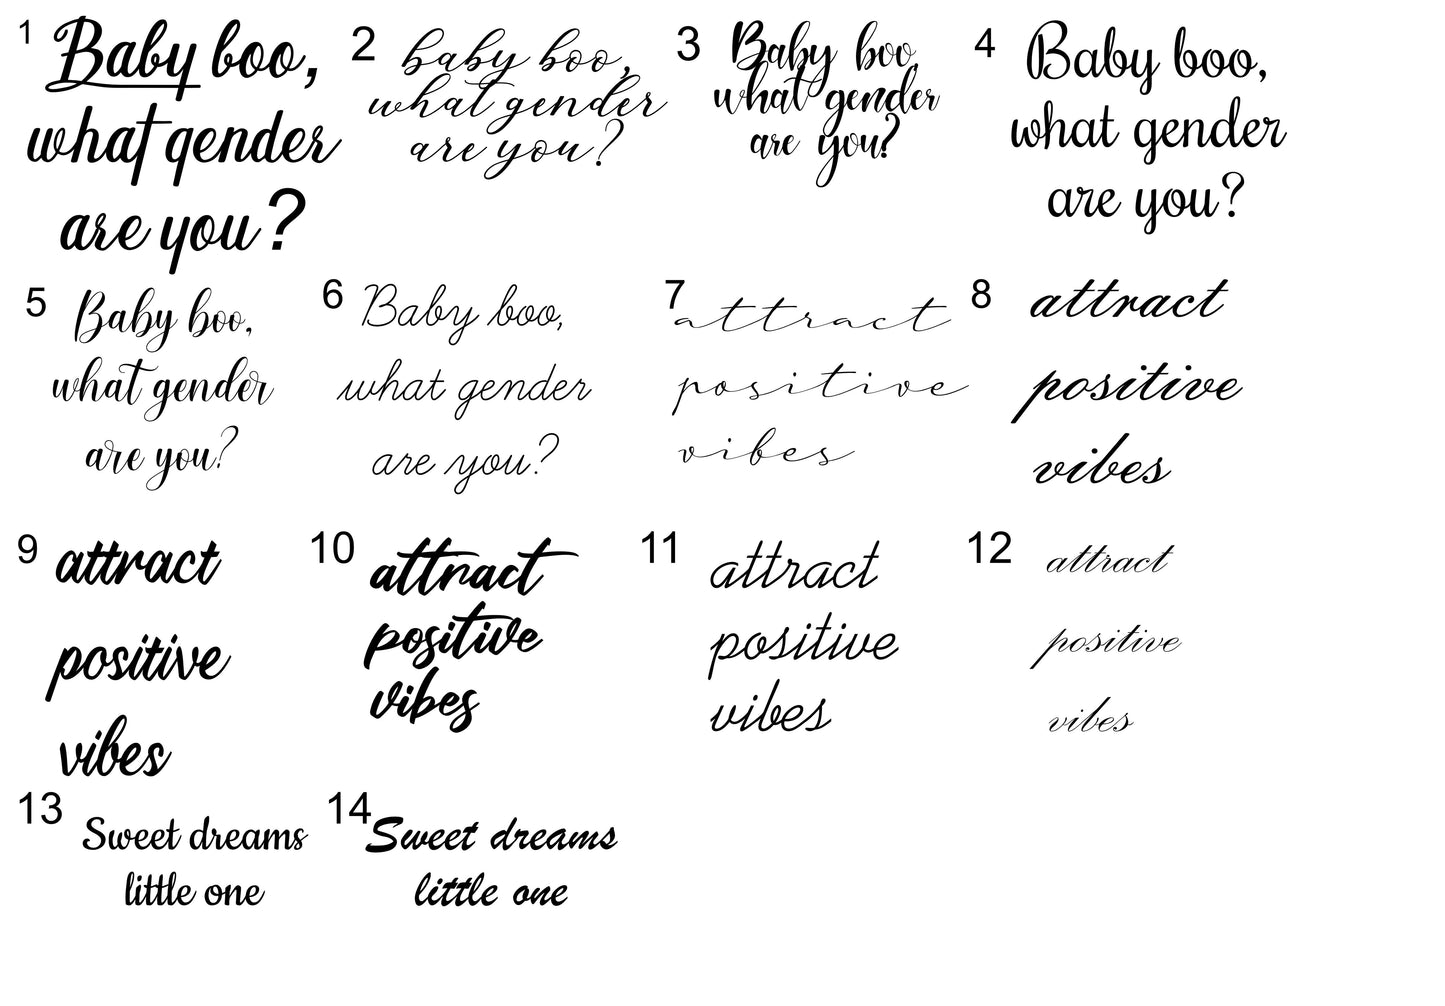 1 Baby boo,
what gender
are you?
2 baby boo,
what gender
are you?
3 Baby boo,
what gender
are you?
4 Baby boo,
what gender
are you?
5 Baby boo,
what gender
are you?
6 Baby boo,
what gender
are you?
7 attract
positive
vibes
8 attract
positive
vibes
9 attract
positive
vibes
10 attract
positive
vibes
11 attract
positive
vibes
12 attract
positive
vibes
13 Sweet dreams
little one
14 Sweet dreams
little one